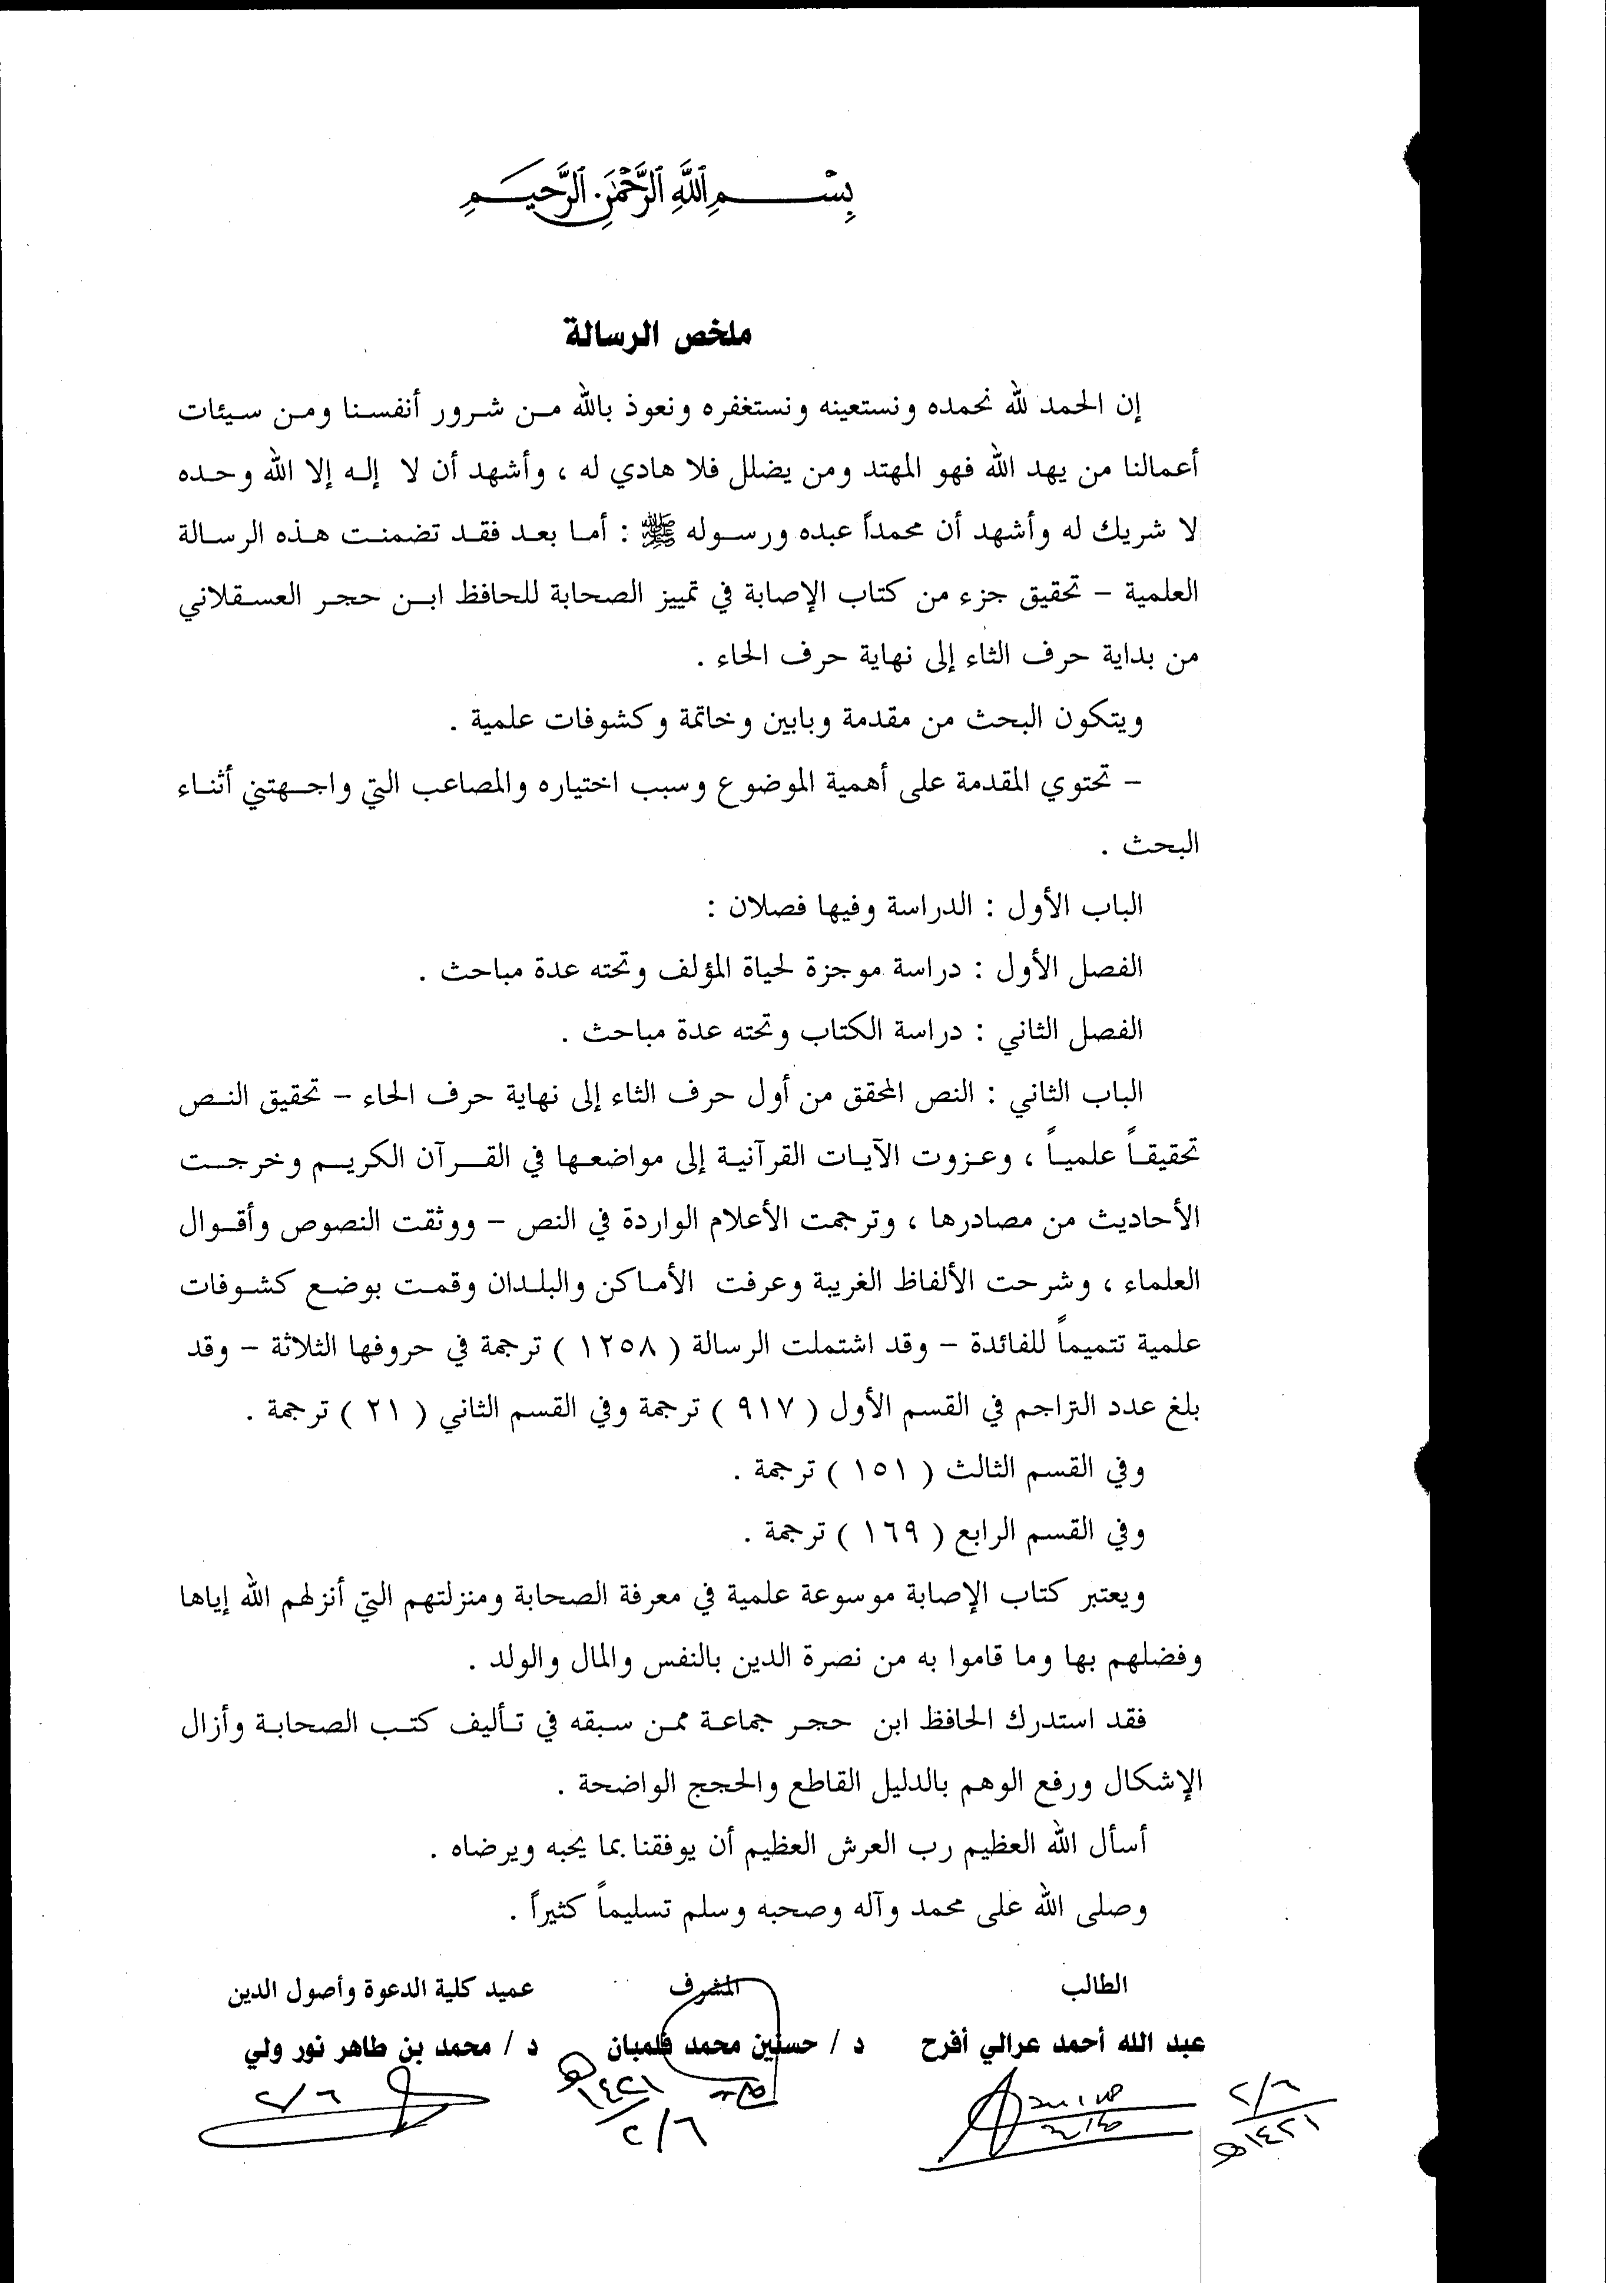 بِسْمِ اللَّهِ الرَّحْمَٰنِ الرَّحِيمِ
ملخص الرسالة
إن الحمد لله نحمده ونستعينه ونستغفره ونعوذ بالله من شرور أنفسنا ومن سيئات
أعمالنا من يهد الله فهو المهتد ومن يضلل فلا هادي له ، وأشهد أن لا إله إلا الله وحده
لا شريك له وأشهد أن محمداً عبده ورسوله ﷺ : أما بعد فقد تضمنت هذه الرسالة
العلمية – تحقيق جزء من كتاب الإصابة في تمييز الصحابة للحافظ ابن حجر العسقلاني
من بداية حرف الثاء إلى نهاية حرف الحاء .
ويتكون البحث من مقدمة وبابين وخاتمة وكشوفات علمية .
– تحتوي المقدمة على أهمية الموضوع وسبب اختياره والمصاعب التي واجهتني أثناء
البحث .
الباب الأول : الدراسة وفيها فصلان :
الفصل الأول : دراسة موجزة لحياة المؤلف وتحته عدة مباحث .
الفصل الثاني : دراسة الكتاب وتحته عدة مباحث .
الباب الثاني : النص المحقق من أول حرف الثاء إلى نهاية حرف الحاء – تحقيق النص
تحقيقاً علمياً ، وعزوت الآيات القرآنية إلى مواضعها في القرآن الكريم وخرجت
الأحاديث من مصادرها ، وترجمت الأعلام الواردة في النص – ووثقت النصوص وأقوال
العلماء ، وشرحت الألفاظ الغريبة وعرفت الأماكن والبلدان وقمت بوضع كشوفات
علمية تتميماً للفائدة – وقد اشتملت الرسالة ( ١٢٥٨ ) ترجمة في حروفها الثلاثة – وقد
بلغ عدد التراجم في القسم الأول ( ٩١٧ ) ترجمة وفي القسم الثاني ( ٢١ ) ترجمة .
وفي القسم الثالث ( ١٥١ ) ترجمة .
وفي القسم الرابع ( ١٦٩ ) ترجمة .
ويعتبر كتاب الإصابة موسوعة علمية في معرفة الصحابة ومنزلتهم التي أنزلهم الله إياها
وفضلهم بها وما قاموا به من نصرة الدين بالنفس والمال والولد .
فقد استدرك الحافظ ابن حجر جماعة ممن سبقه في تأليف كتب الصحابة وأزال
الإشكال ورفع الوهم بالدليل القاطع والحجج الواضحة .
أسأل الله العظيم رب العرش العظيم أن يوفقنا بما يحبه ويرضاه .
وصلى الله على محمد وآله وصحبه وسلم تسليماً كثيراً .
الطالب المشرف عميد كلية الدعوة وأصول الدين
عبد الله أحمد عرالي أفرح د / حسنين محمد فلمبان د / محمد بن طاهر نور ولي
٢/٦
١٤٢١هـ
١٤٢١هـ
٢/٦
٢/٦